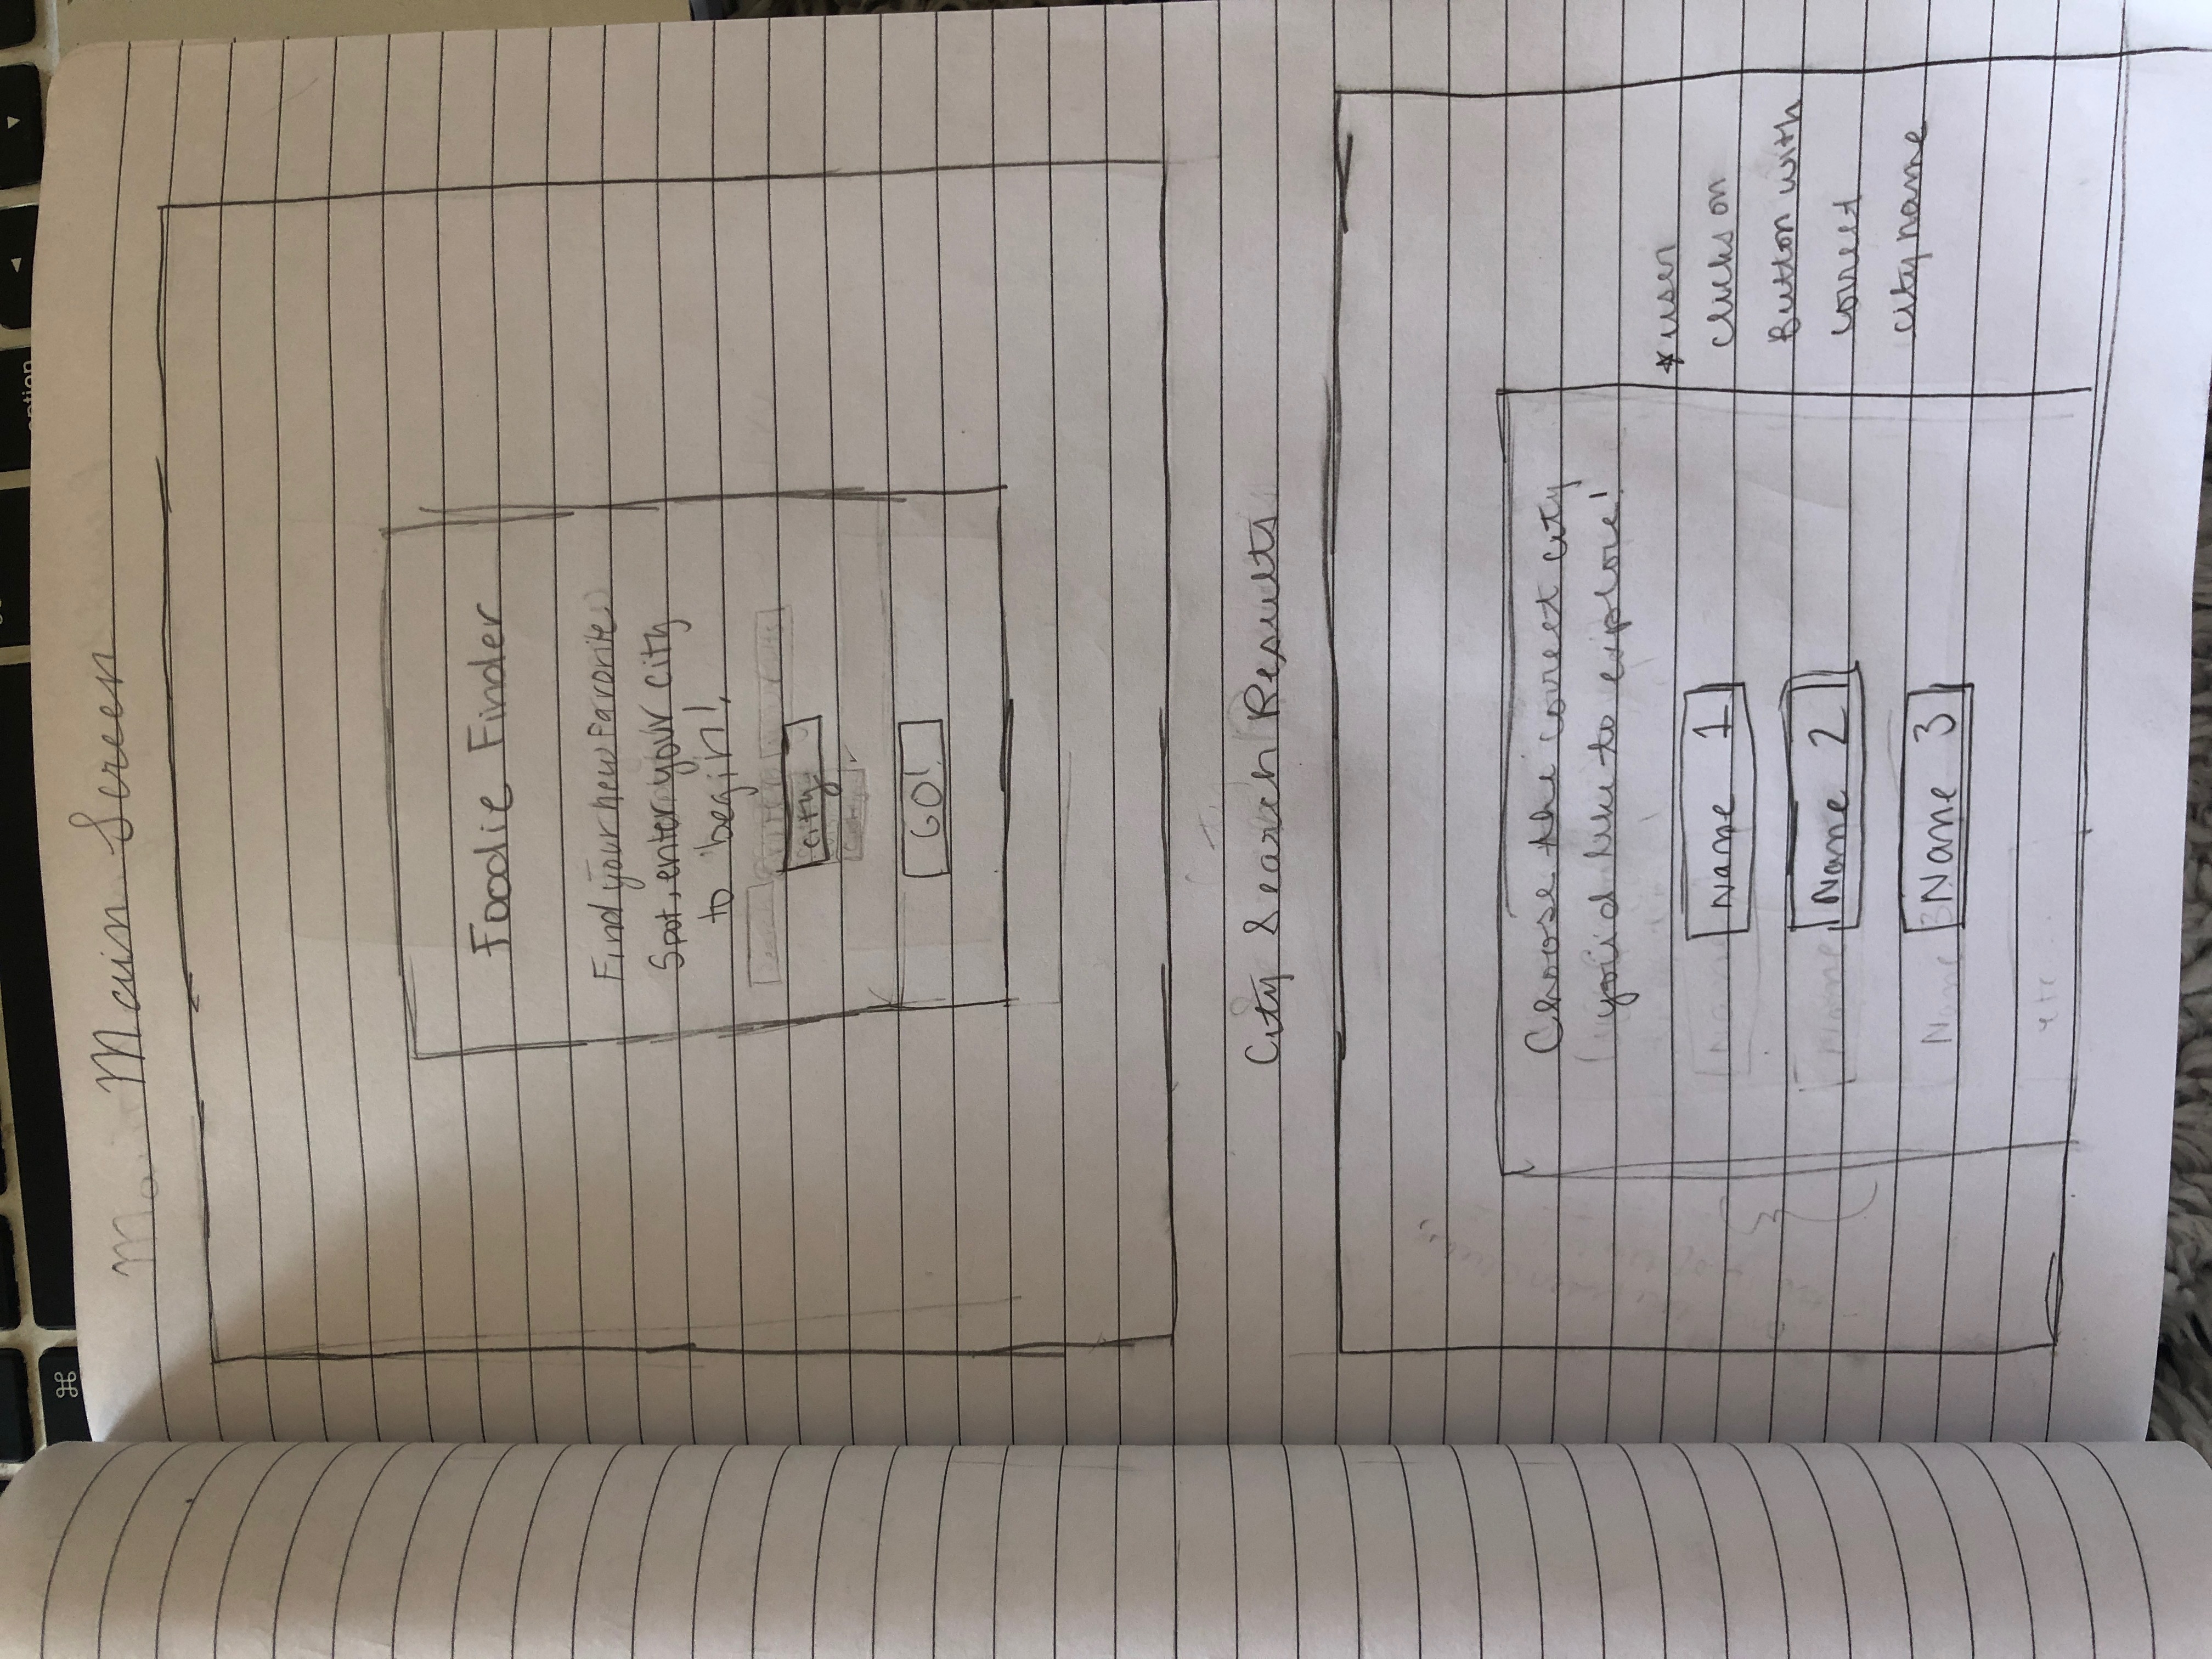 ⌘
option
◄
▼
Main Screen
Foodie Finder
Find your new Favorite
Spot, enter your city
to begin!
city
GO!
City Search Results
Choose the correct city
you'd like to explore!
Name 1
Name 2
Name 3
etc...
* user
clicks on
Button with
correct
city name